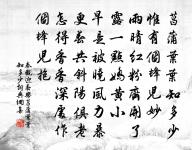 菖蒲葉葉知多少
惟有個蜂兒妙
雨晴紅粉齊開了
露一點嬌黃小
早是被曉風力暴
更春共斜陽俱老
怎得香香深處作
個蜂兒抱
秦觀迎春樂菖蒲葉葉
知多少